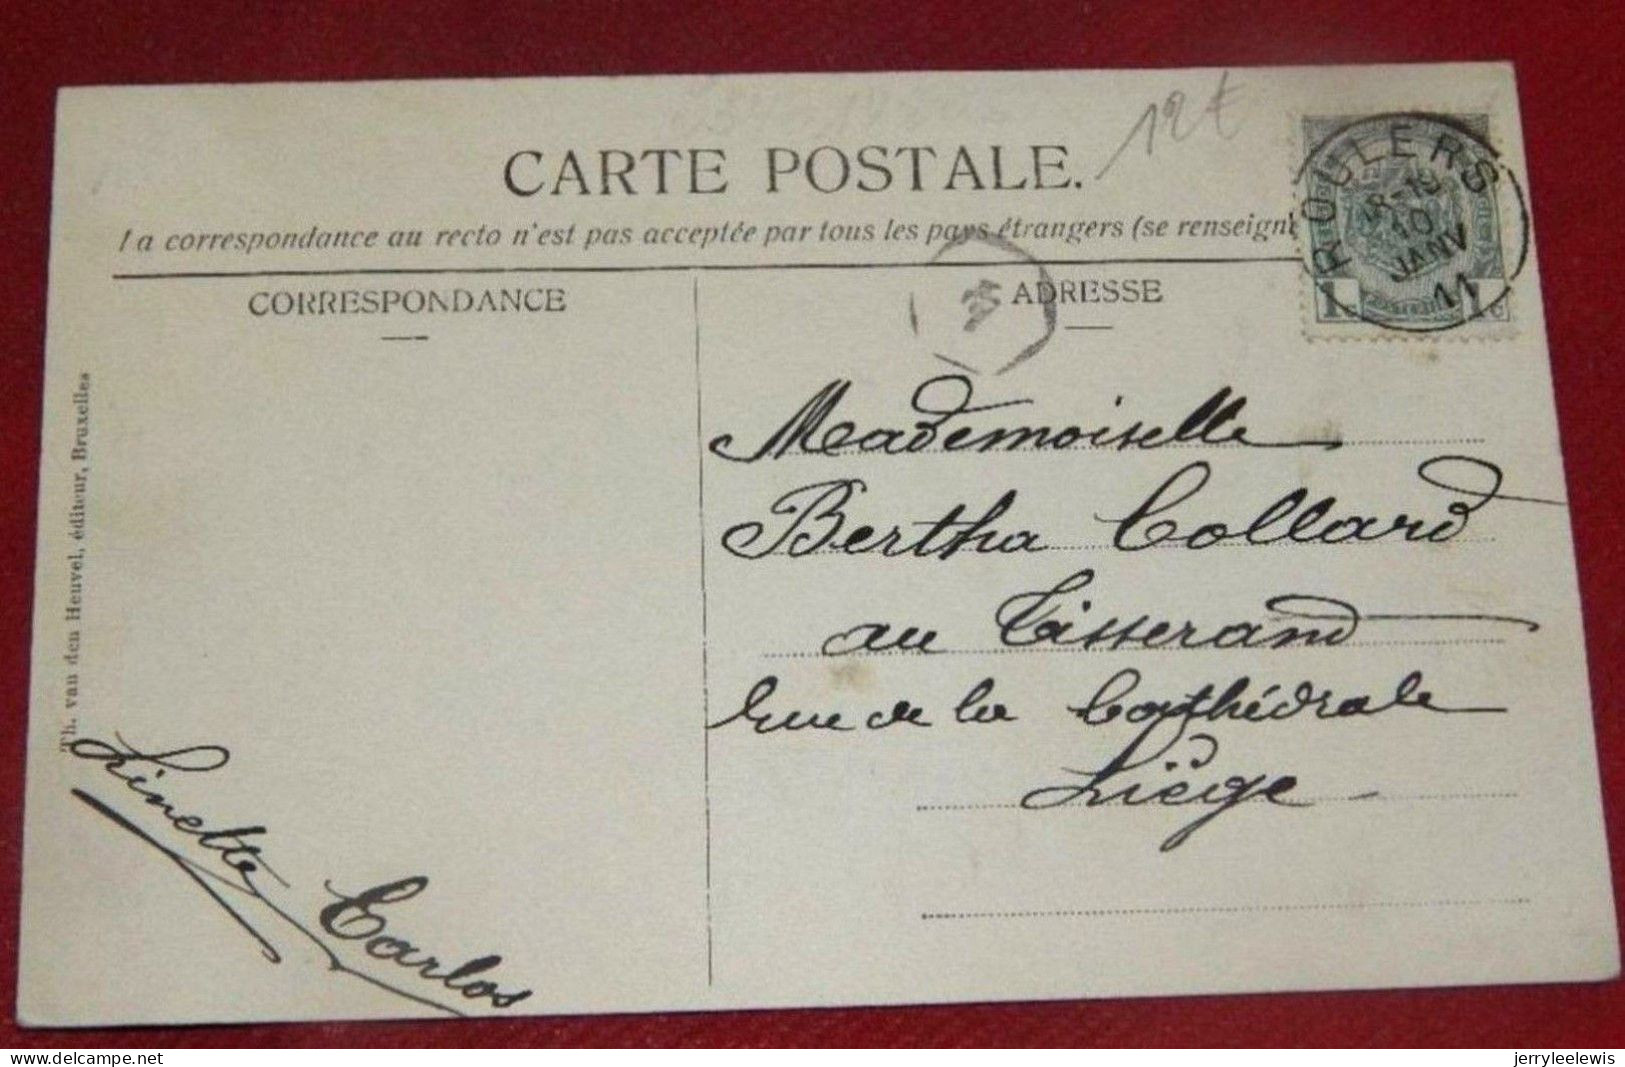 12€
CARTE POSTALE.
La correspondance au recto n'est pas acceptée par tous les pays étrangers (se renseign
CORRESPONDANCE
ADRESSE
ROULERS
18-19
10
JANV
11
1c 1c
Mademoiselle
Bertha Collard
au Tisserand
Rue de la Cathédrale
Liège
Th. van den Heuvel, éditeur, Bruxelles
Linette Carlos
delcampe.net
jerryleelewis